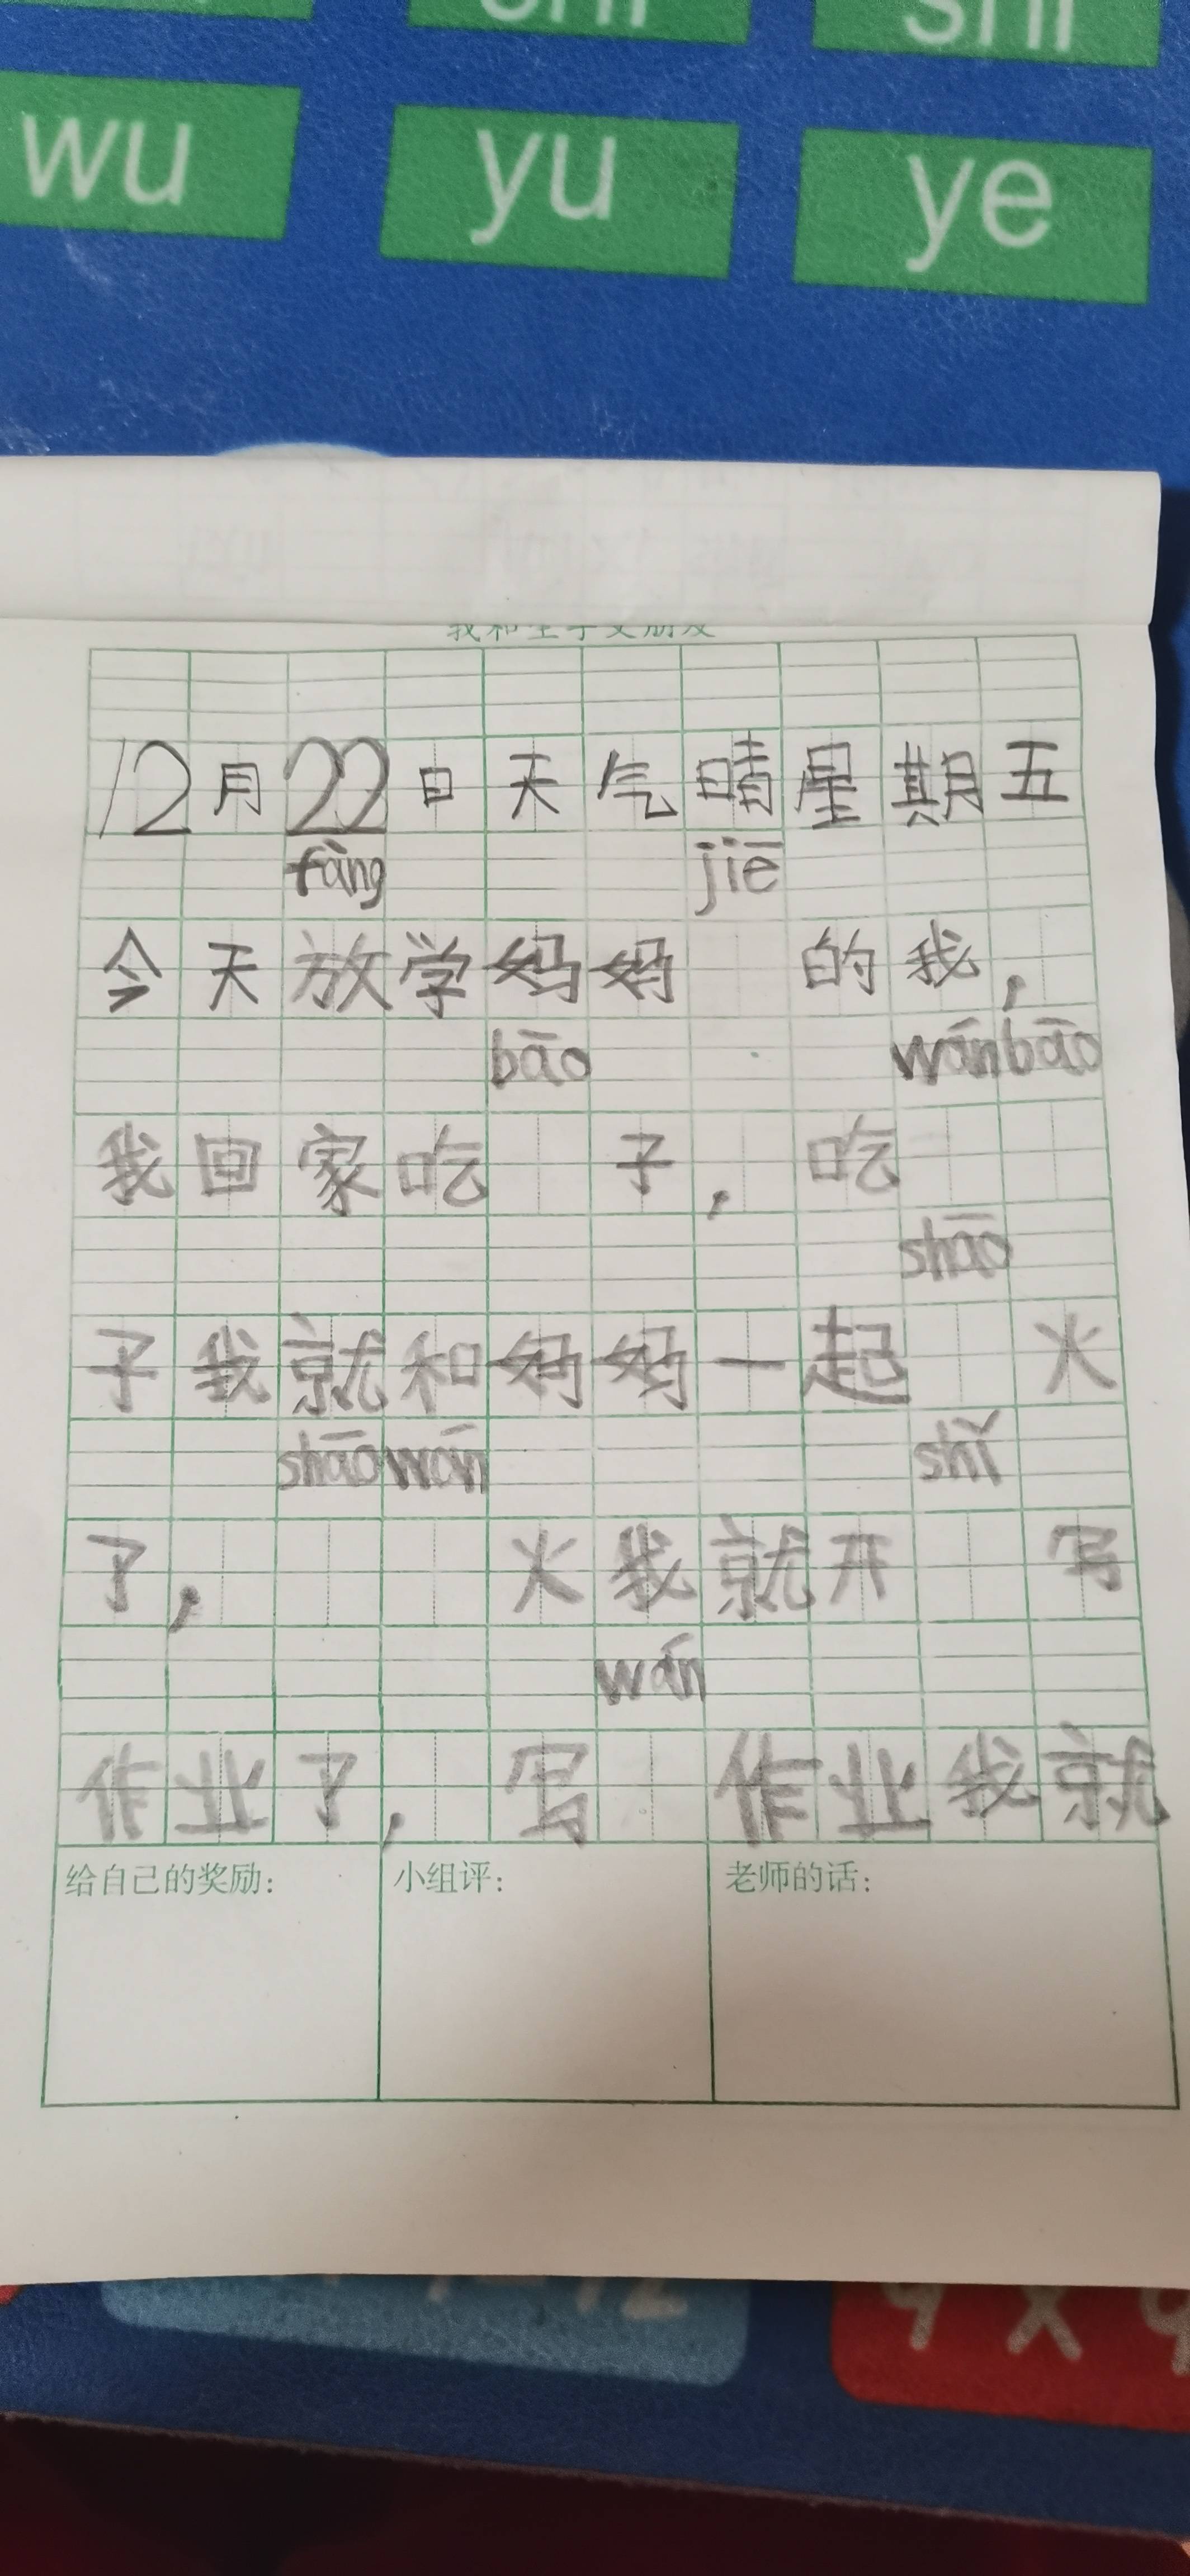 shi
wu yu ye
12月22日天气晴星期五
fàng jiē
今天放学妈妈 的我，
bāo wánbāo
我回家吃 子，吃
shāo
子我就和妈妈一起 火
shāowán shǐ
了， 火我就开 写
wán
作业了，写 作业我就
给自己的奖励： 小组评： 老师的话：